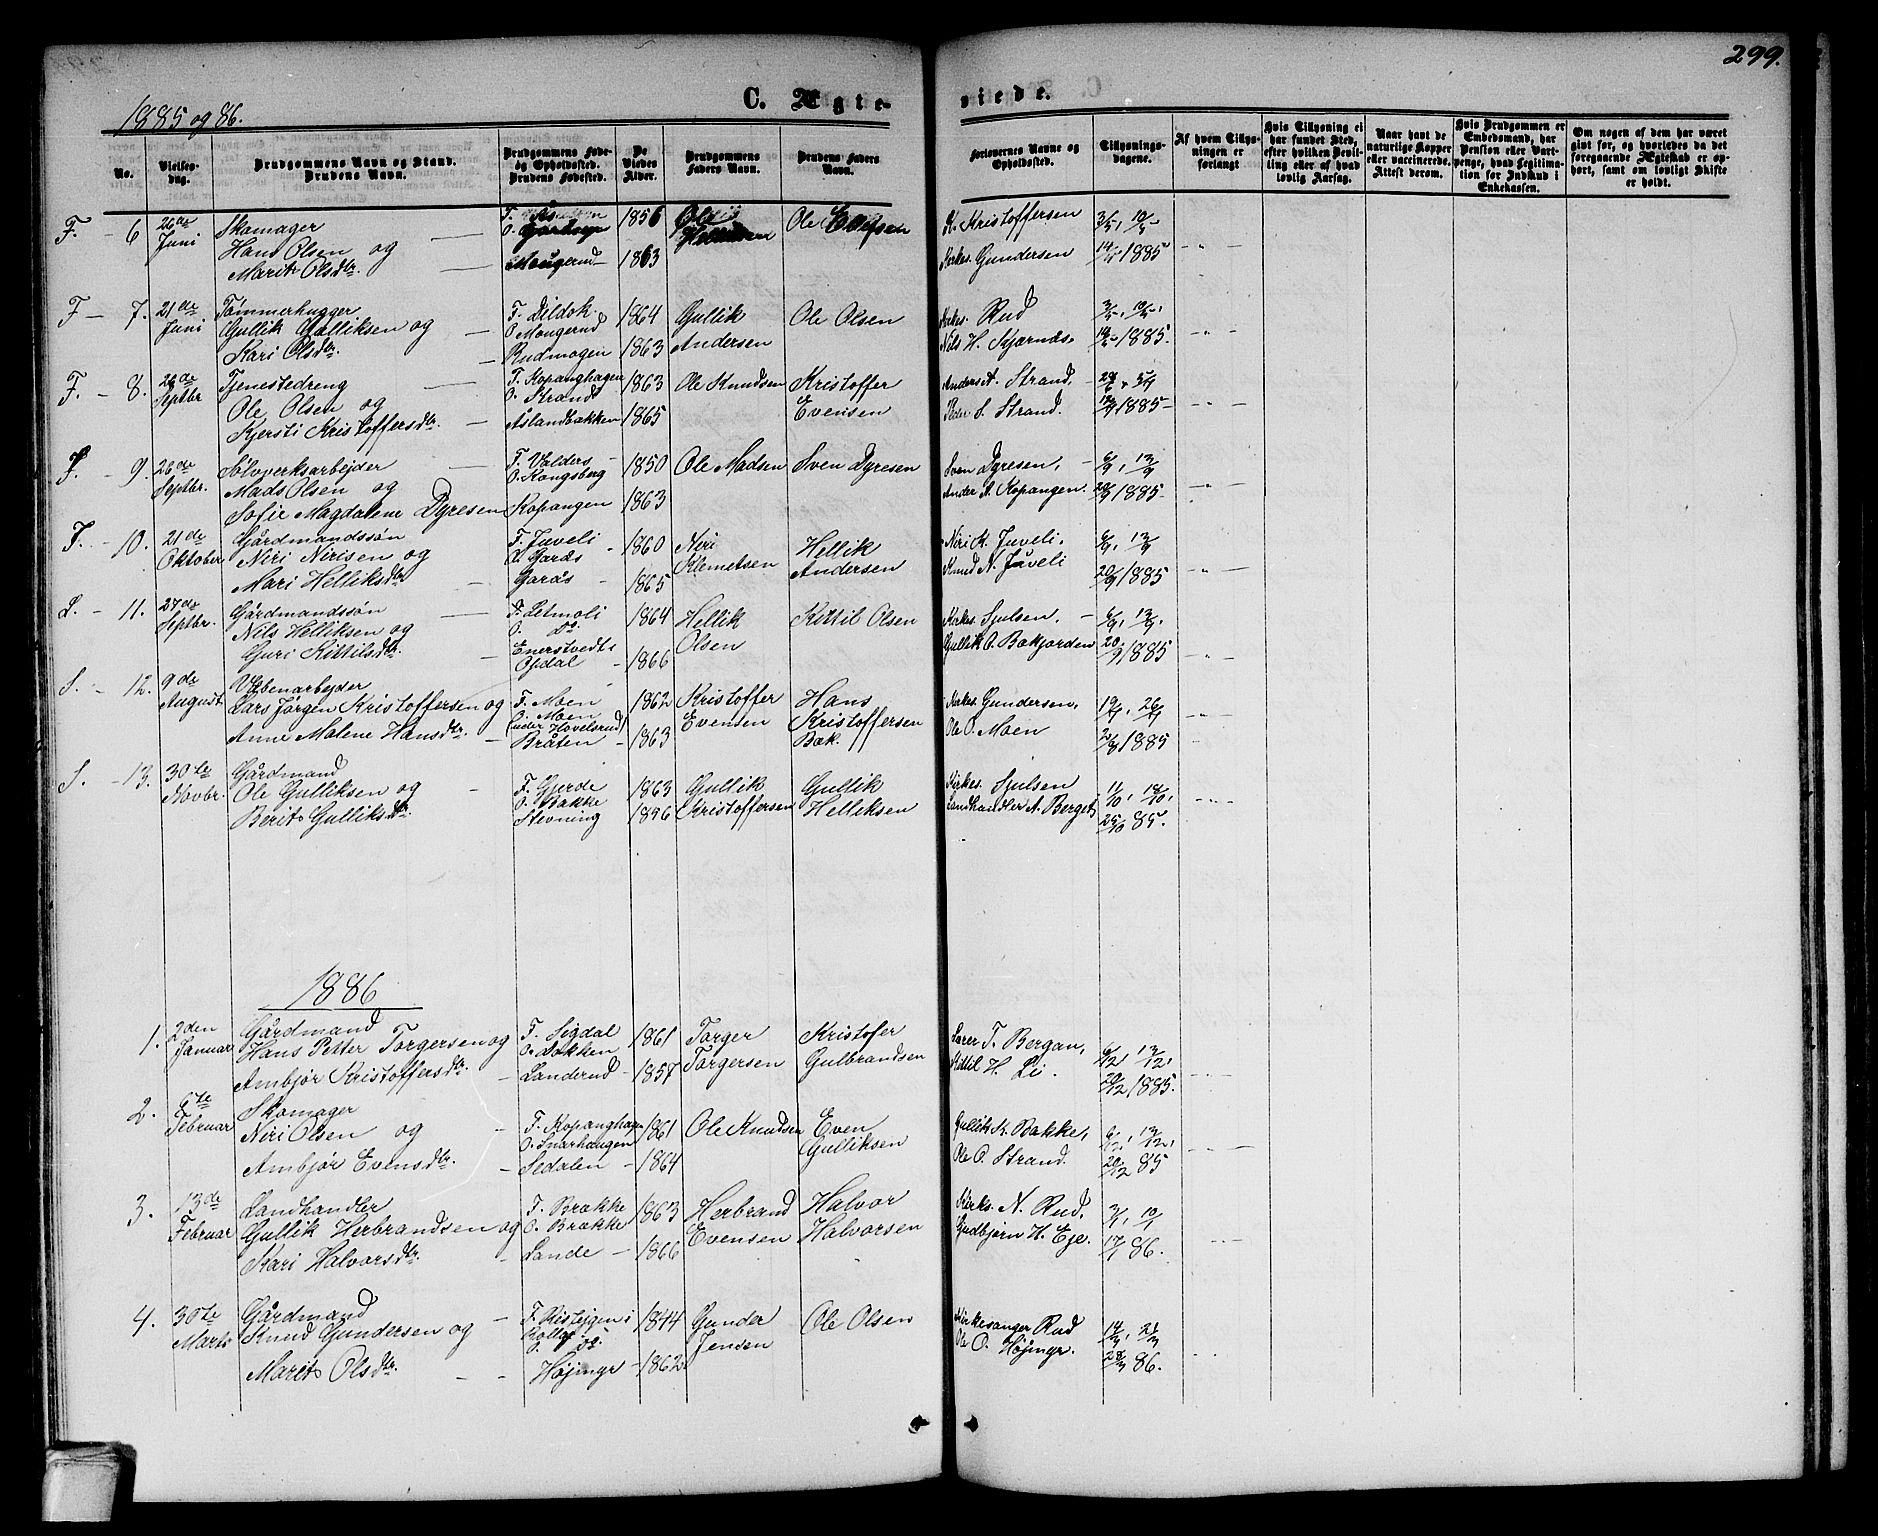 299.
1885 og 86.
C. Ægte-
viede.
No.
Vielses-
dag.
Brudgommens Navn og Stand.
Brudens Navn.
Brudgommens Føde-
og Opholdssted.
Brudens Fødested.
De
Viedes
Alder.
Brudgommens
Faders Navn.
Brudens Faders
Navn.
Forlovernes Navne og
Opholdssted.
Tillysnings-
dagene.
Af hvem Tillys-
ningen er
forlangt
Hvis Tillysning ei
har fundet Sted,
efter hvilken Bevil-
ling eller af hvad
lovlig Aarsag.
Naar havt de
naturlige Kopper
eller vaccinerede.
Attest derom.
Hvis Brudgommen er
Embedsmand, har
Pension eller Vart-
penge, hvad Legitima-
tion for Indskud i
Enkekassen.
Om nogen af dem har været
gift før, og hvorledes da det
foregaaende Ægteskab er op-
hørt, samt om lovligt Skifte
er holdt.
F. - 6
26de
Juni
Skomager
Hans Olsen og
Marit Olsdtr.
Mougerud
1856
1863
Ole
Ole
K. Kristoffersen
Kirkes. Gundersen
3/5, 10/5
14/5 1885
F - 7.
21de
Juni
Tømmerhugger
Gullik Gulliksen og
Kari Olsdtr.
F. Dildok.
O. Mougerud
Rudmogen
1864
1863
Gullik
Andersen
Ole Olsen
Kirkes. Rud
Nils H. Kjørnds.
3/5, 10/5,
14/5 1885.
F. - 8.
26de
Septbr
Tjenestedreng
Ole Olsen og
Kjersti Kristoffersdtr.
F. Kopanghagen
O. Strand
Åslandbakken
1863
1865
Ole Knudsen
Kristoffer
Evensen
Anders A. Strand,
Peder S. Strand.
1885
F. - 9.
26de
Septbr.
Sølvverksarbejder
Mads Olsen og
Sofie Magdalene Dyresen
F. Valders
O. Kongsberg
Kopangen
1850
1863
Ole Madsen
Sven Dyresen
Sven Dyresen,
Ander A. Kopangen.
6/9, 13/9
20/9 1885
F. - 10.
21de
Oktober
Gårdmandssøn
Niri Nirisen og
Mari Helliksdtr
F. Juveli
O. Garås
Garås
1860
1865
Niri
Klemetsen
Hellik
Andersen
Niri K. Juveli,
Knud N. Juveli
6/9, 13/9
20/9 1885
L. - 11.
27de
Septbr.
Gårdmandssøn
Nils Helliksen og
Guri Kittilsdtr.
F. Letmoli
O. Do
Enerstvedt i
Opdal
1864
1866
Hellik
Olsen
Kittil Olsen
Kirkes. Sjulsen.
Gullik O. Bakjorden
6/9, 13/9,
20/9 1885
S. - 12.
9de
August
Våbenarbejder
Lars Jørgen Kristoffersen og
Anne Malene Hansdtr.
F. Moen
O. Moen
(under Hovelsrud)
Bråten
1862
1863
Kristoffer
Evensen
Hans
Kristoffersen
Bak.
Kirkes. Gundersen,
Ole O. Moen
19/7, 26/7
2/8 1885
S. - 13.
30te
Novbr.
Gårdmand
Ole Gulliksen og
Berit Gulliksdtr.
F. Gjerde
O. Bakke
Stevning
1863
Gullik
Kristoffersen
Gullik
Helliksen
Kirkes. Sjulsen
Landhandler A. Berget
11/10, 18/10,
25/10 85.
1886
1.
2den
Januar
Gårdmand
Hans Petter Torgersen og
Ambjør Kristoffersdtr.
F. Sigdal
O. Løkken
Landerud
1861
1857
Torger
Torgersen
Kristofer
Gulbrandsen
Lærer T. Bergan,
Kittil H. Li.
6/12, 13/12,
20/12 1885.
2.
6te
Februar
Skomager
Niri Olsen og
Ambjør Evensdtr.
F. Kopanghagen
O. Snarhaugen
Sedalen
1861
1864
Ole Knudsen
Even
Gulliksen
Gullik K. Bakke,
Ole O. Strand.
6/12, 13/12,
20/12 85
3.
13de
Februar
Landhandler
Gullik Herbrandsen og
Kari Halvorsdtr.
F. Brække
O. Brække
Lande
1863
1866
Herbrand
Evensen
Halvor
Halvorsen
Kirks. N. Rud,
Gudbjørn H. Eje.
3/1, 10/1
17/1 86.
4.
30te
Marts
Gårdmand
Knud Gundersen og
Marit Olsdtr.
F. Ristejgen i
Højingr
1844
1862
Gunder
Jensen
Ole Olsen
Kirkesanger Rud
Ole O. Højingr.
14/3, 21/3
28/3 86.